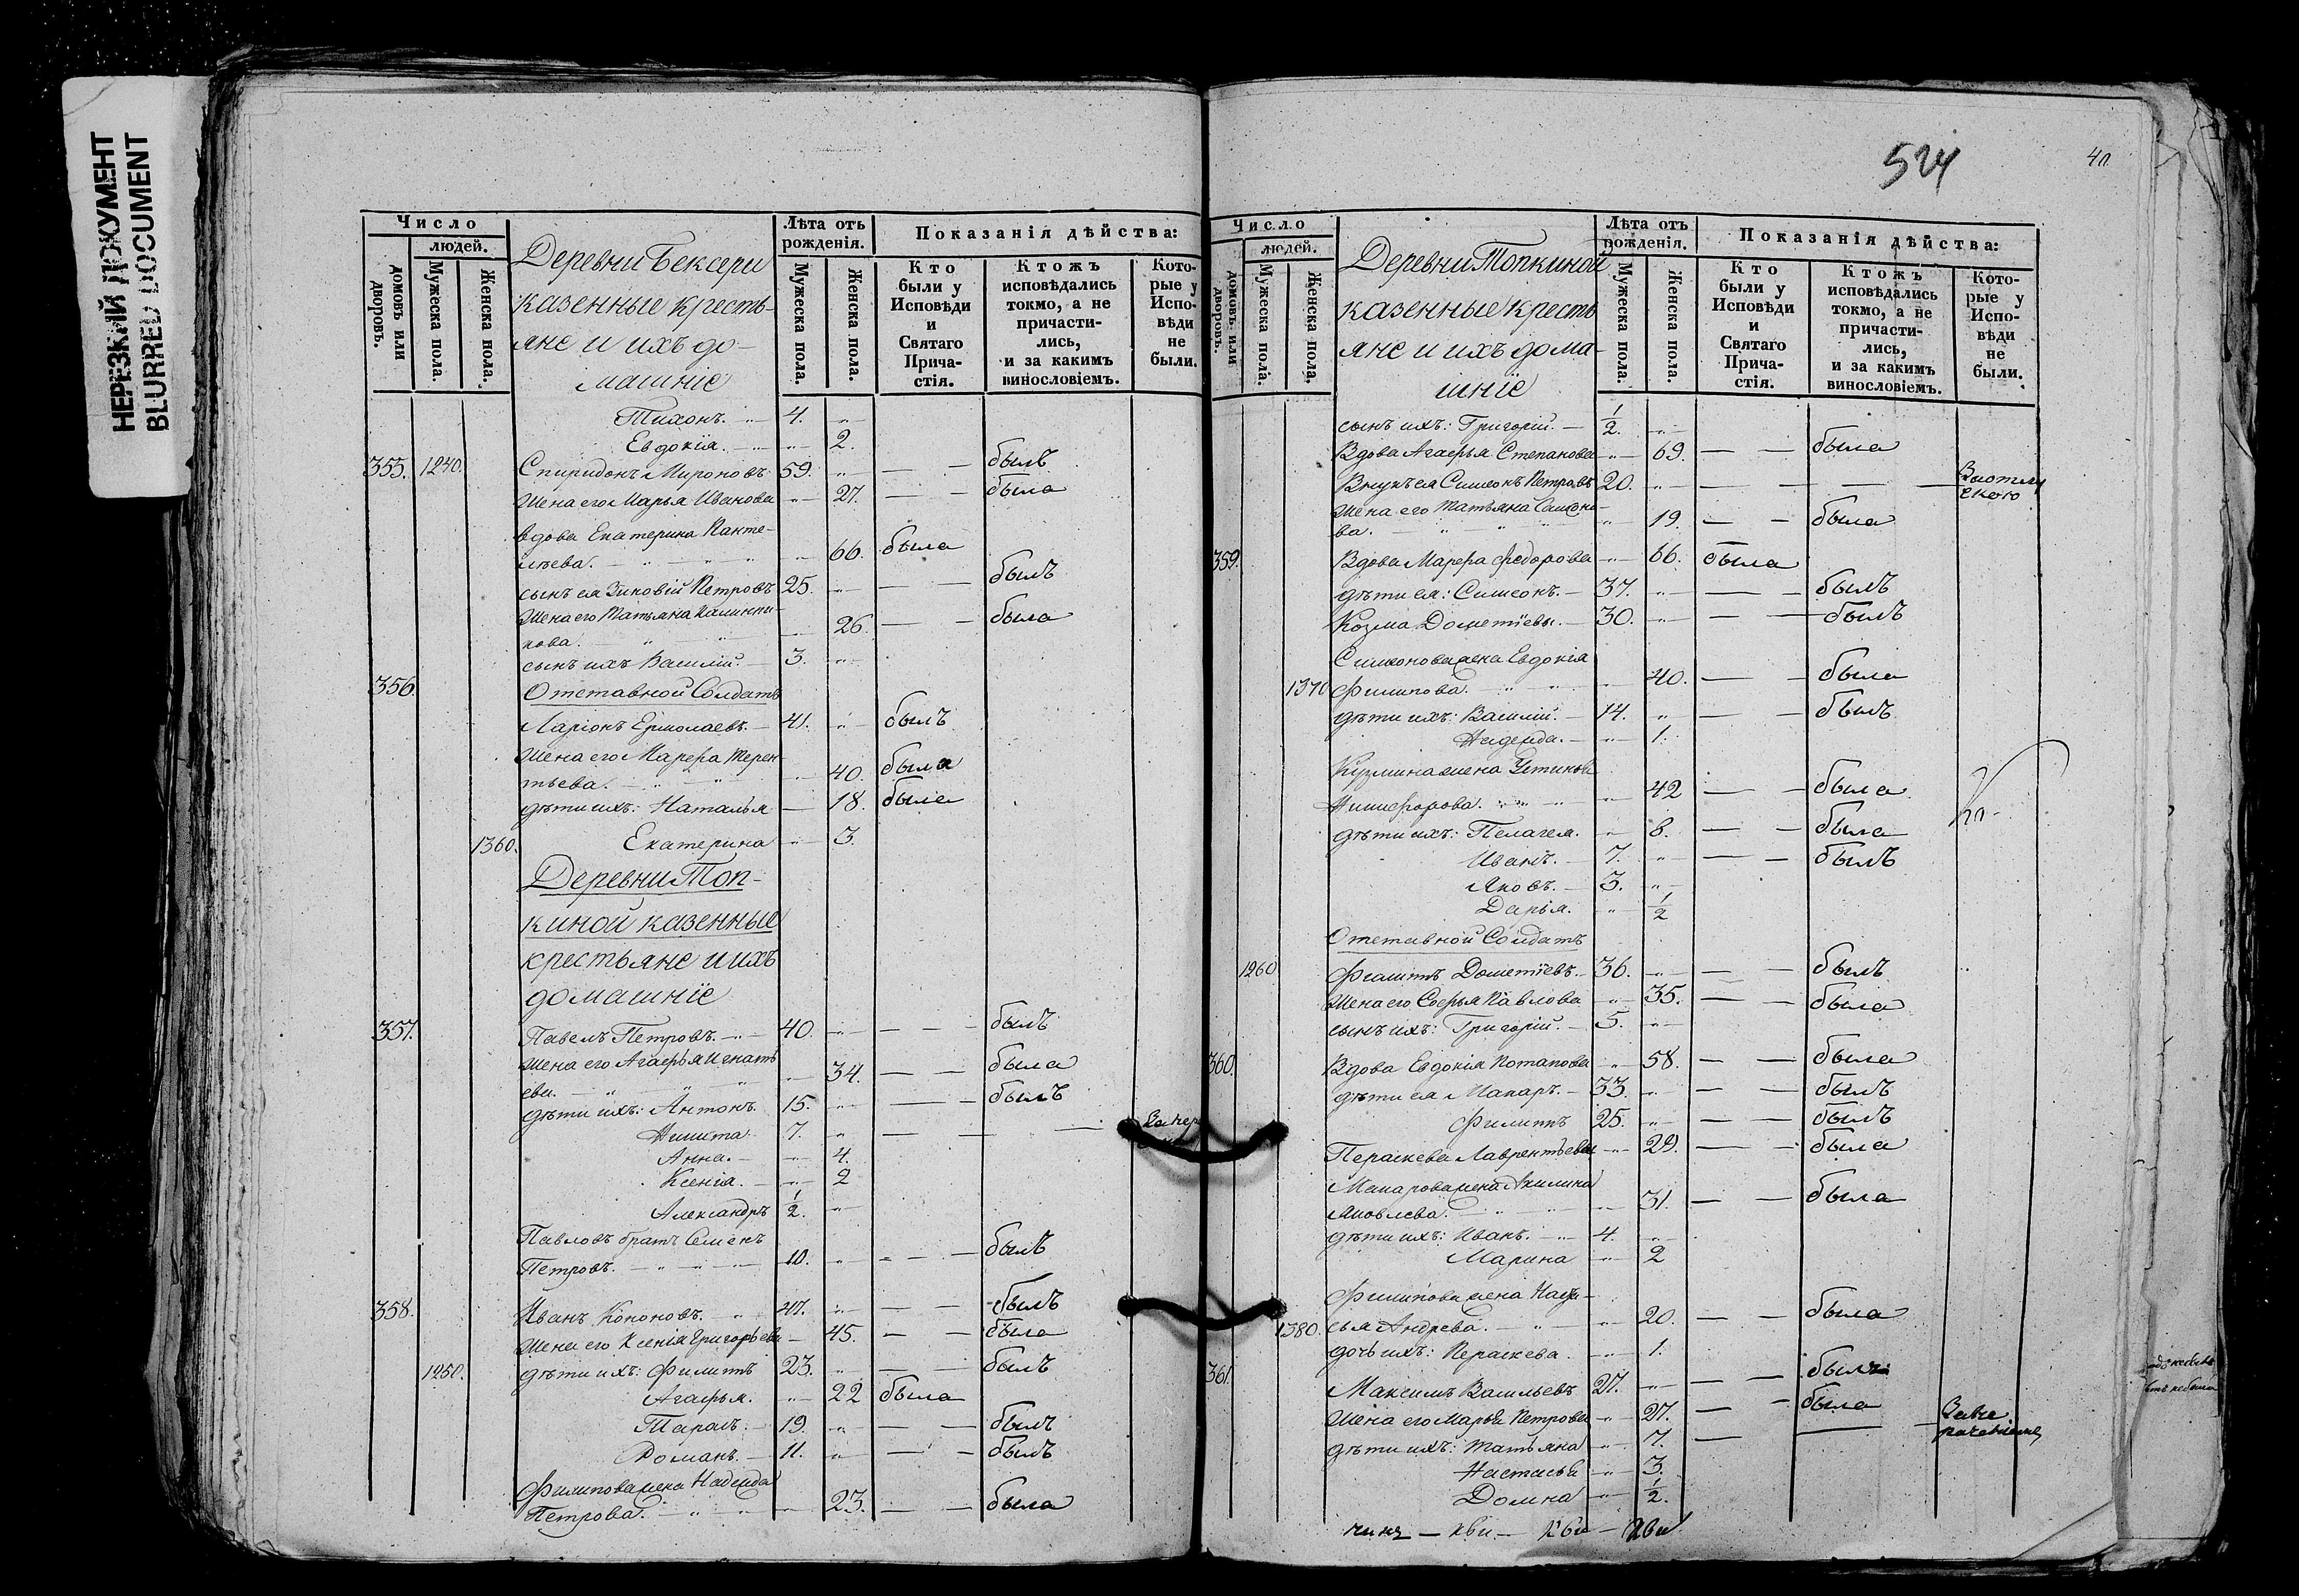 НЕРЕЗКИЙ ДОКУМЕНТ
BLURRED DOCUMENT
Число
людей.
домовъ или дворовъ.
Мужеска пола.
Женска пола.
Деревни Бексери
казенные кресть-
яне и ихъ до-
машніе
Лѣта отъ рожденія.
Мужеска пола.
Женска пола.
Показанія дѣйства:
Кто были у Исповѣди и Святаго Прича-стія.
Ктожъ исповѣдались токмо, а не причасти-лись, и за какимъ винословіемъ.
Кото-рые у Испо-вѣди не были.
Тихонъ. 4.
Евдокія. 2.
355. 1240. Спиридонъ Мироновъ 59. былъ
Жена его Марья Иванова 27. была
вдова Екатерина Панте-
лѣева. 66. была
сынъ ея Зиновій Петровъ 25. былъ
Жена его Татьяна Калинни-
кова. 26. была
сынъ ихъ Василій. 3.
356. Отставной Солдатъ
Ларіонъ Ермолаевъ. 41. былъ
Жена его Марѳа Терен-
тьева. 40. была
дѣти ихъ: Наталья 18. была
1360. Екатерина 3.
Деревни Топ-
киной казенные
крестьяне и ихъ
домашніе
357. Павелъ Петровъ. 40. былъ
Жена его Агафья Игнать
ева. 34. была
дѣти ихъ: Антонъ. 15. былъ
Никита 7.
Анна. 4.
Ксенія. 2
Александръ 1/2.
Павловъ братъ Семенъ
Петровъ. 10. былъ
358. Иванъ Кононовъ. 47. былъ
Жена его Ксенія Григорьева 45. была
1250. дѣти ихъ: Филиппъ 23. былъ
Агафья. 22 была
Тарасъ. 19. былъ
Романъ. 11. былъ
Филипова жена Надежда
Петрова. 23. была
524
Число
людей.
домовъ или дворовъ.
Мужеска пола.
Женска пола.
Деревни Топкиной
казенные кресть
яне и ихъ дома-
шніе
Лѣта отъ рожденія.
Мужеска пола.
Женска пола.
Показанія дѣйства:
Кто были у Исповѣди и Святаго Прича-стія.
Ктожъ исповѣдались токмо, а не причасти-лись, и за какимъ винословіемъ.
Кото-рые у Испо-вѣди не были.
сынъ ихъ: Григорій. 1/2.
Вдова Агафья Степанова 69. была
Внукъ ея Симеонъ Петровъ 20.
Жена его Татьяна Самсоно-
ва. 19. была
359. Вдова Марѳа Федорова 66. была
дѣти ея: Симеонъ. 37. былъ
Козма Дометіевы. 30. былъ
Симеонова жена Евдокія
1370 Филипова. 40. была
дѣти ихъ: Василій. 14. былъ
Надежда. 1.
Кузмина жена Устинья
Никифорова. 42 была
дѣти ихъ: Пелагея. 8. была
Иванъ. 7. былъ
Яковъ. 3.
Дарья. 1/2
Отставной Солдатъ
1260 Филиппъ Дометіевъ. 36. былъ
Жена его Софья Павлова 35. была
сынъ ихъ: Григорій. 5.
360. Вдова Евдокія Потапова 58. была
дѣти ея Макаръ. 33. былъ
Филиппъ 25. былъ
Пераскева Лаврентьева 29. была
Макарова жена Акилина
Яковлева. 31. была
дѣти ихъ: Иванъ. 4.
Марина 2
Филипова жена Наста-
1380. сья Андрева. 20. была
дочь ихъ: Пераскева. 1.
361. Максимъ Васильевъ 27. былъ
Жена его Марья Петрова 27. была
дѣти ихъ: Татьяна 7.
Настасья 3.
Домна 1/2.